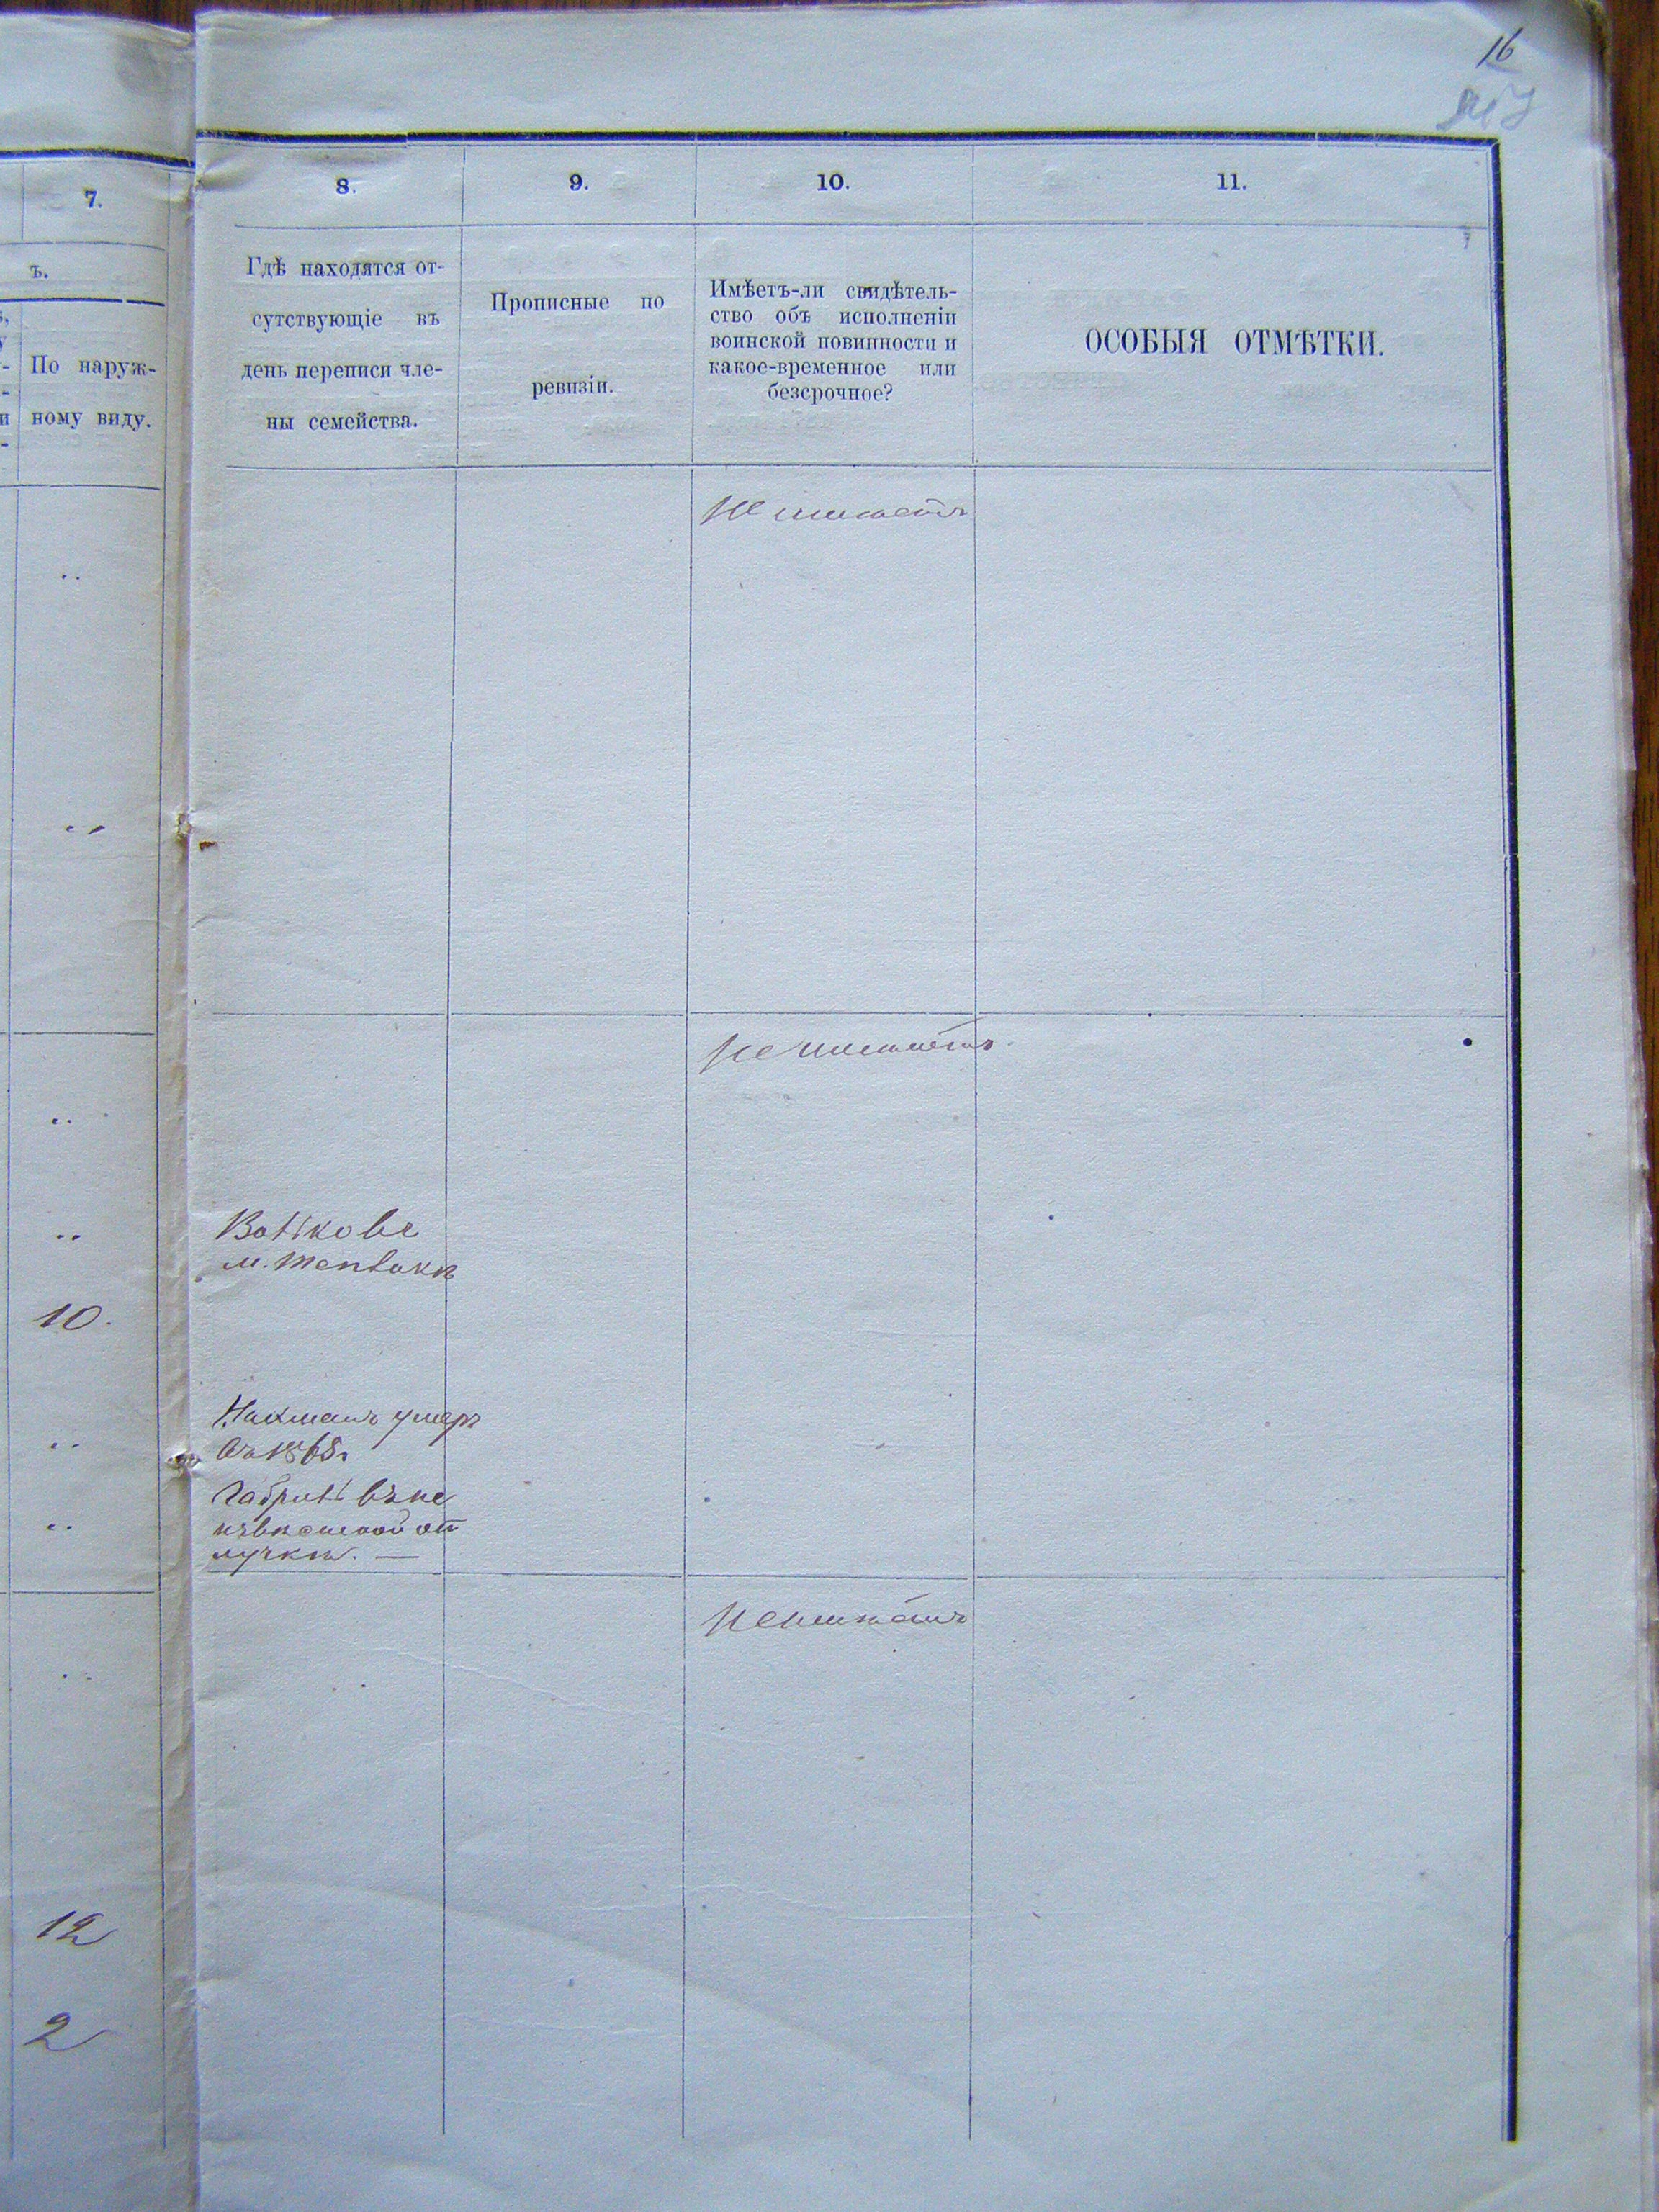 16
7.
8.
9.
10.
11.
ъ.
По наруж-
ному виду.
Гдѣ находятся от-
сутствующіе въ
день переписи чле-
ны семейства.
Прописные по
ревизіи.
Имѣетъ-ли свидѣтель-
ство объ исполненіи
воинской повинности и
какое-временное или
безсрочное?
ОСОБЫЯ ОТМѢТКИ.
не имѣетъ
не имѣетъ
м.
10.
Нахманъ умеръ
въ 1868г
въ не
от
лучкѣ. —
не имѣетъ
12
2